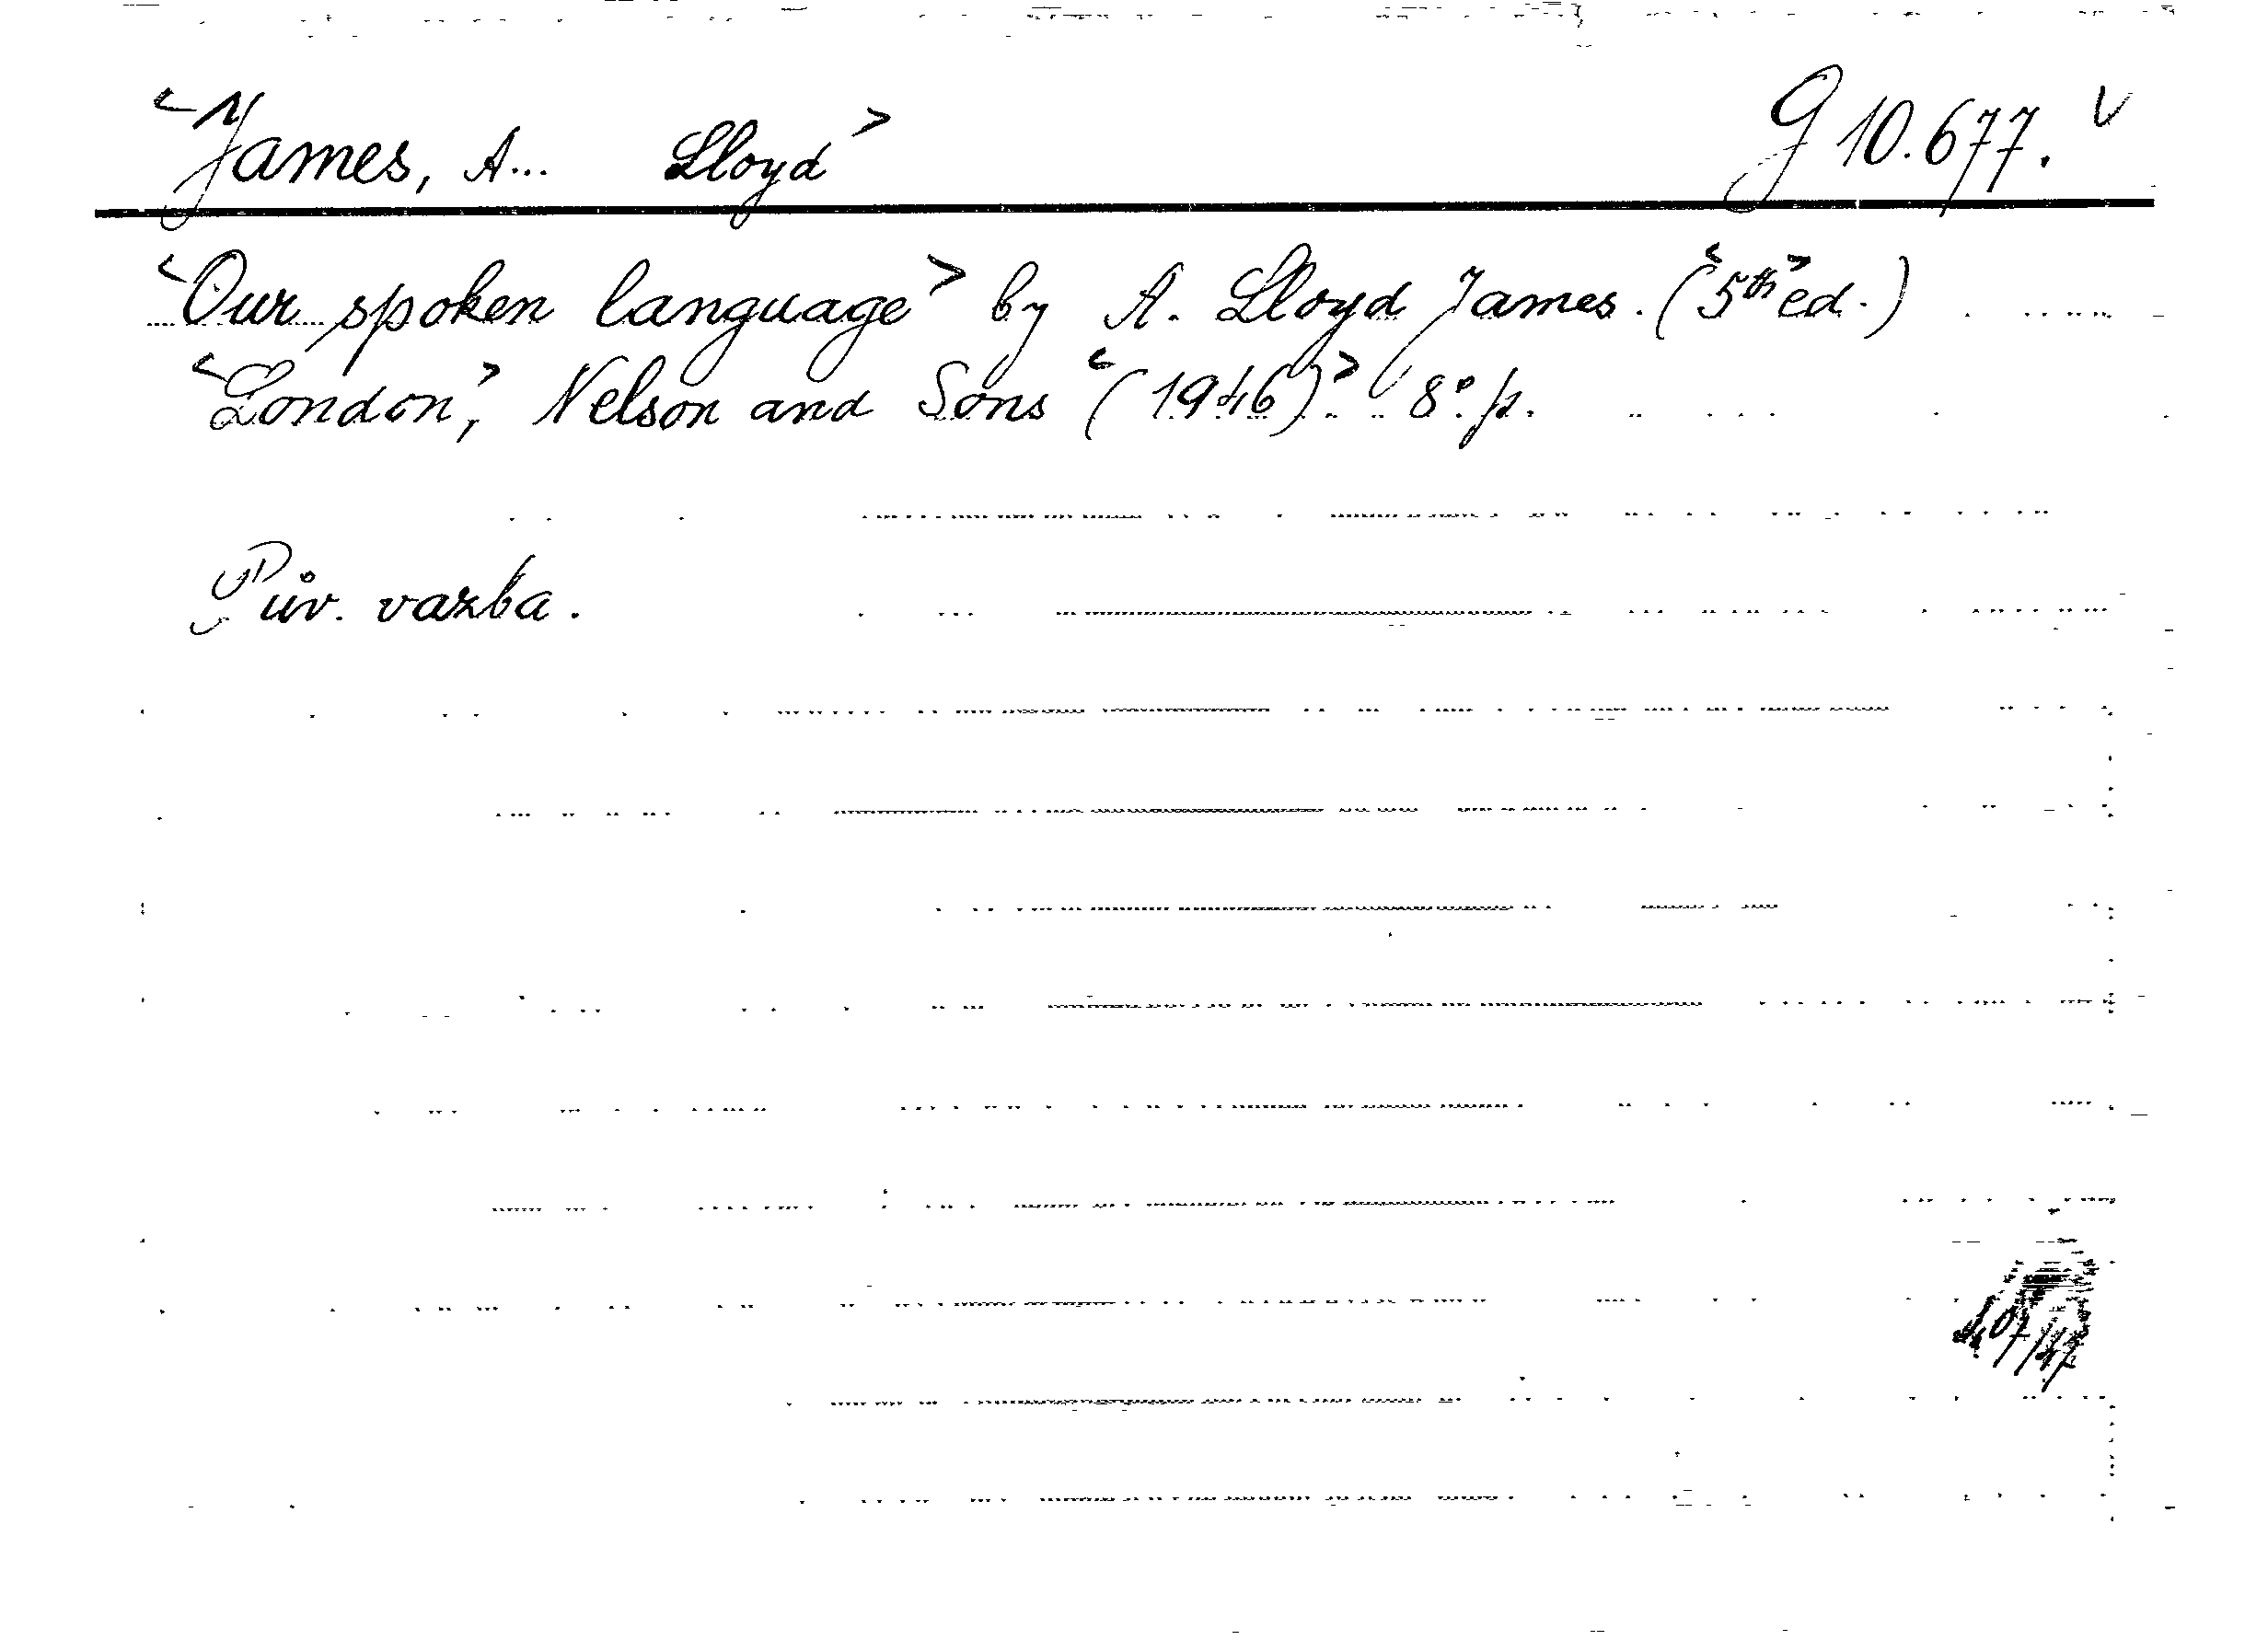 <James, A... Lloyd> G 10.677. V
<Our spoken language> by A. Lloyd James. (<5th> ed.)
<London>, Nelson and Sons <(1946)>. 8°. p.
Pův. vazba.